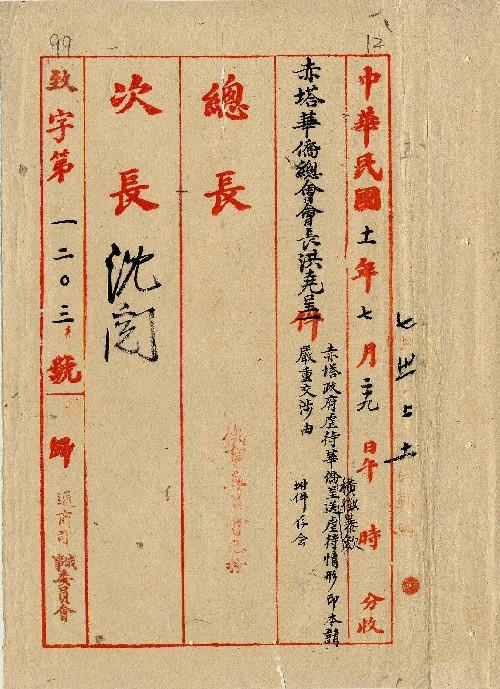 99
12
中華民國十一年七月二十九日午 時 分收
赤塔華僑總會會長洪堯呈一件
赤塔政府虐待華僑呈送虐待情形印本請
橫徵暴斂
嚴重交涉由
附件存会
總長
次長 沈閱
致字第一二〇三號 歸
通商司